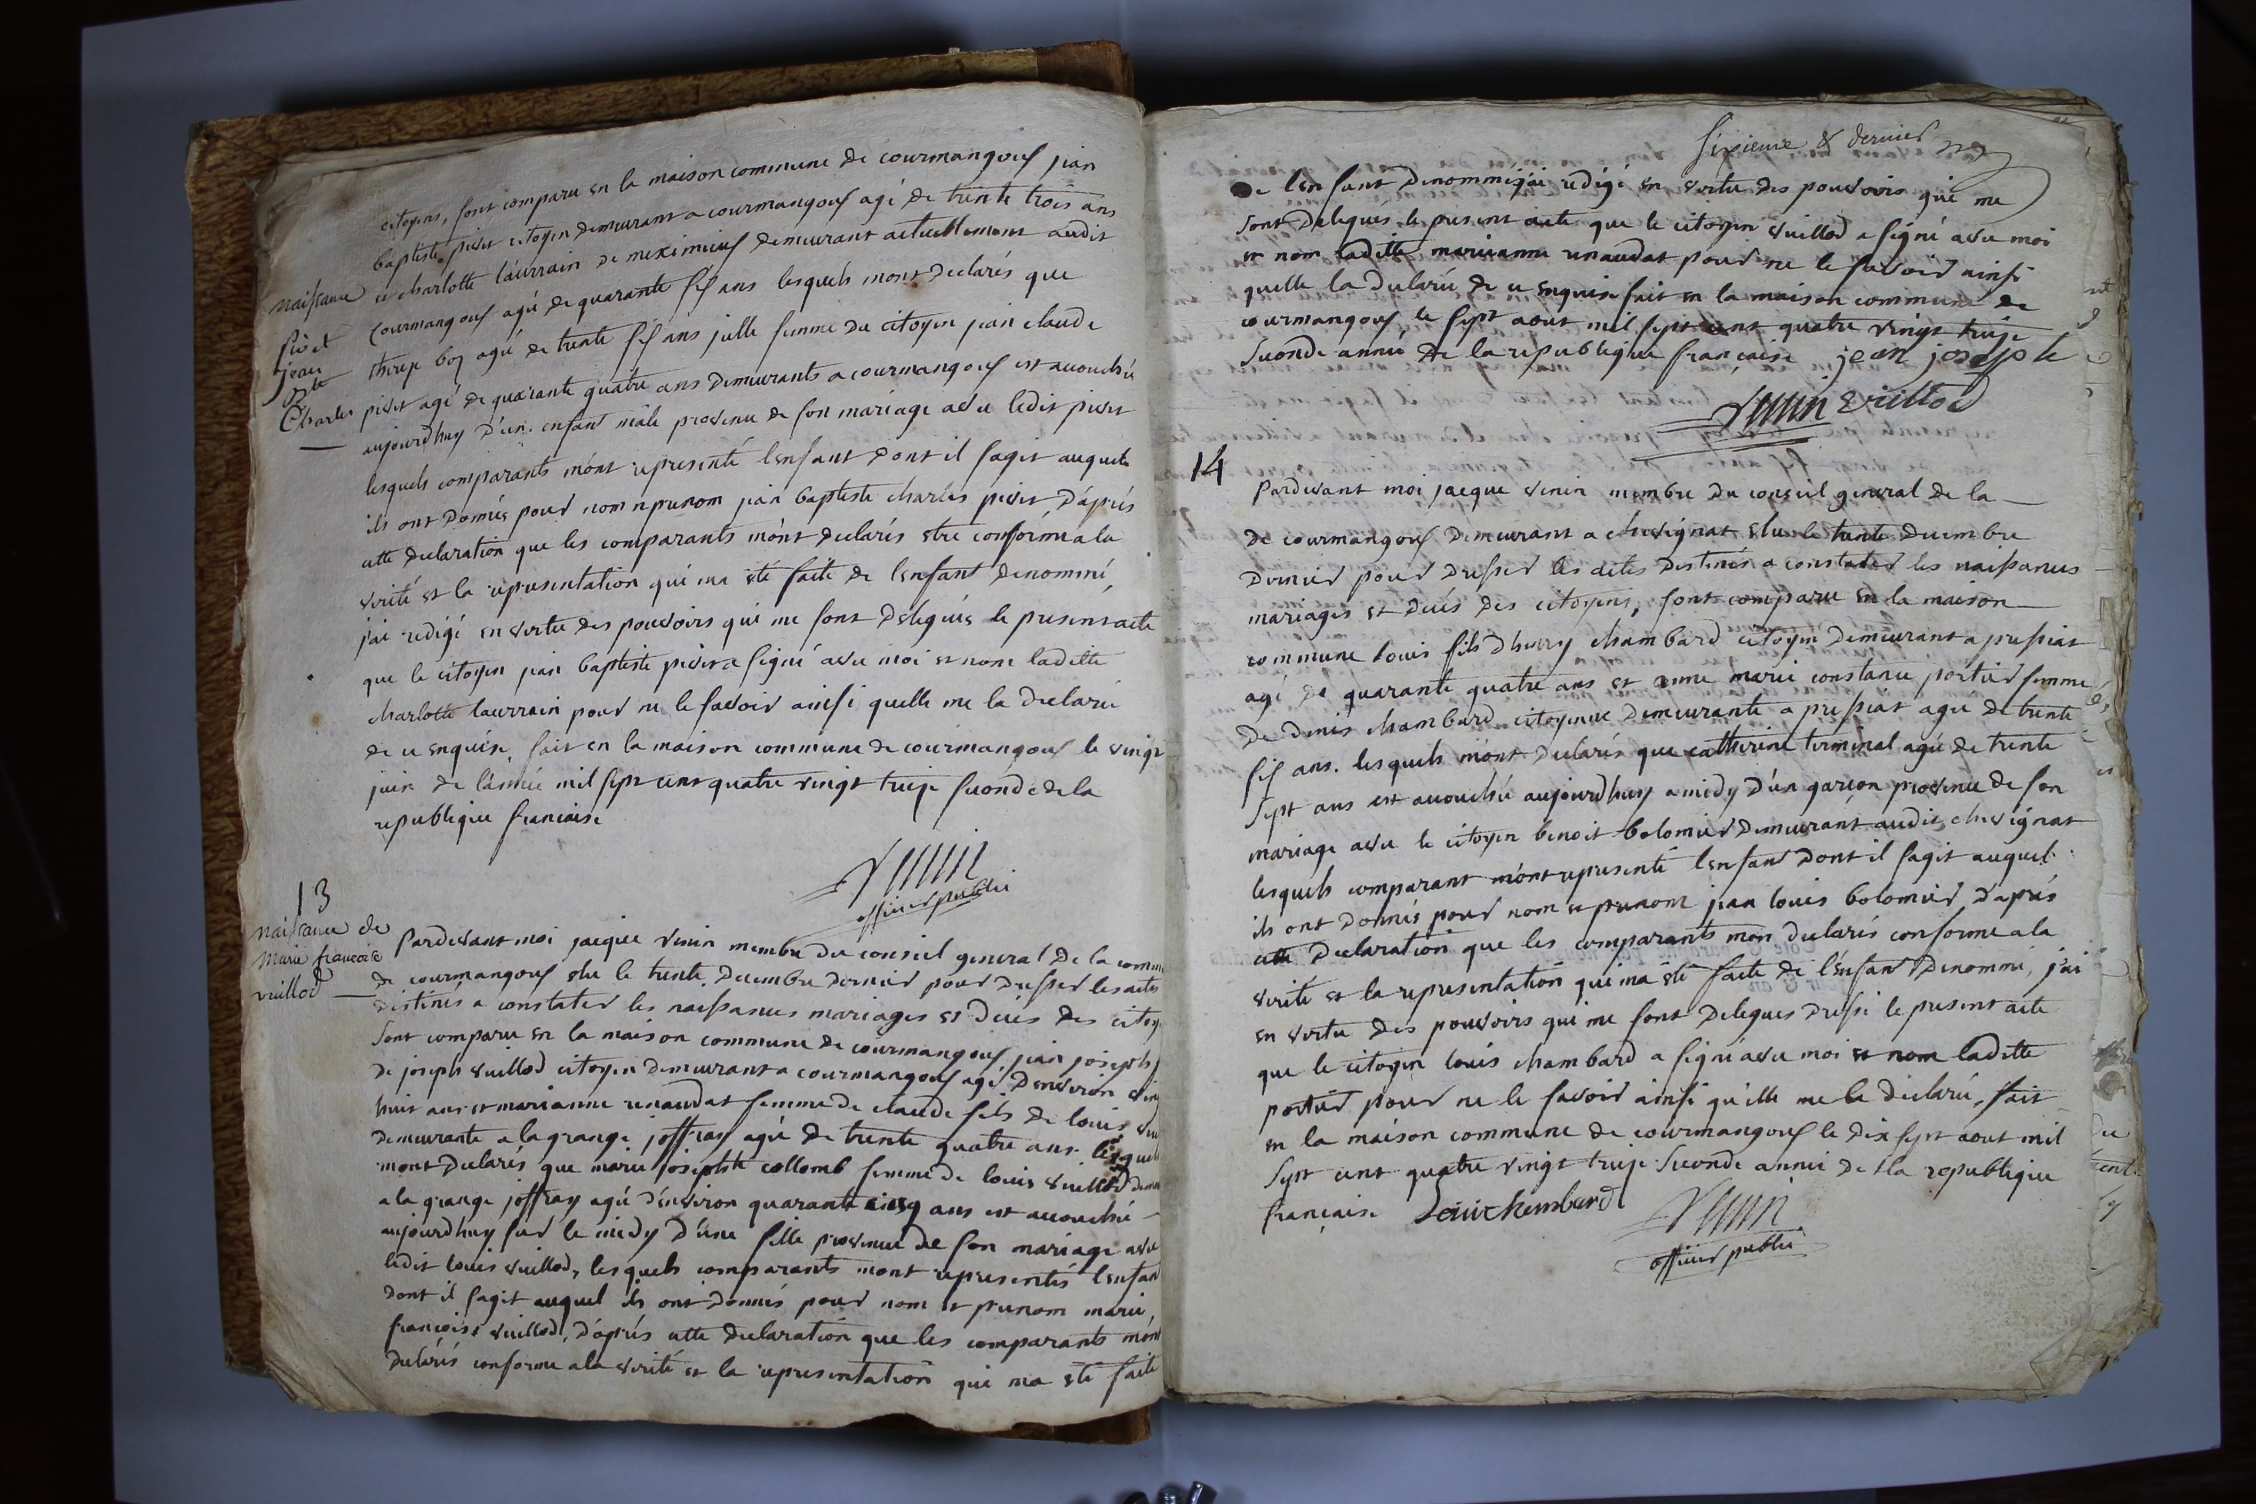 citoyens, sont comparu en la maison commune de courmangoux jean
baptiste pivet citoyen demeurant a courmangoux agé de trente trois ans
naissance
et charlotte laurrain de meximieux demeurant actuellement audit
courmangoux agée de quarante six ans lesquels mont declarés que
jean
bte
Charles
therese bog agée de trente six ans julle femme du citoyen jean claude
pivet agé de quarante quatre ans demeurants a courmangoux est acouchée
aujourdhuy d'un enfant mâle provenu de son mariage avec ledit pivet
lesquels comparants m'ont representé lenfant dont il sagit auquels
ils ont donnés pour nom et prenom jean baptiste charles pivet, d'aprés
cette declaration que les comparants m'ont declarés etre conforme a la
verité et la representation qui ma été faite de lenfant denommé,
j'ai redigé en vertu des pouvoirs qui me sont delegués le present acte
que le citoyen jean baptiste pivet a signé avec moi et nom laditte
charlotte laurrain pour ne le savoir ainsi quelle me la declaré
de ce enquise, fait en la maison commune de courmangoux le vingt
juin de l'année mil sept cent quatre vingt treize seconde de la
republique francaise
Venin
officier public
13
naissance de
Marie francoise
vuillod
Pardevant moi jacque venin membre du conseil general de la comm
de courmangoux elu le trente decembre dernier pour dresser les actes
destinés a constater les naissances mariages et decés des citoy
sont comparu en la maison commune de courmangoux jean joseph
de joseph vuillod citoyen demeurant a courmangoux agé denviron vin
huit ans et marianne renaudat femme de claude fils de louis vui
demeurante a la grange joffray agée de trente quatre ans lesquels
mont declarés que marie josephte collomb femme de louis vuillod dem
a la grange joffray agée d'environ quarante cinq ans est acouchée
aujourdhuy sur le midy d'une fille provenue de son mariage avec
ledit louis vuillod, lesquels comparants mont representés lenfan
dont il sagit auquel ils ont donnés pour nom et prenom marie,
francoise vuillod, d'aprés cette declaration que les comparants m'ont
declarés conforme a la verité et la representation qui ma eté faite
sixieme & dernier
de lenfant denommé j'ai redigé en vertu des pouvoirs qui me
sont delegues le present acte que le citoyen vuillod a signé avec moi
et nom laditte marianne renaudat pour ne le savoir ainsi
quelle la declaré de ce enquise fait en la maison commune de
courmangoux le sept aout mil sept cent quatre vingt treize
seconde année de la republique française jean joseph
Venin vuillod
14
Pardevant moi jacque venin membre du conseil general de la
de courmangoux demeurant a chevignat elu le trente decembre
dernier pour dresser les actes destinés a constater les naissances
mariages et decés des citoyens, sont comparu en la maison
commune louis fils dhenry chambard citoyen demeurant a pressiat
agé de quarante quatre ans et anne marie constance portier femme
de denis chambard citoyenne demeurante a pressiat agée de trente
six ans. lesquels m'ont declarés que catherine terminal agée de trente
sept ans est acouchée aujourdhuy a midy d'un garçon provenue de son
mariage avec le citoyen benoit bolomier demeurant audit chevignat
lesquels comparant m'ont representé lenfant dont il sagit auquel
ils ont donnés pour nom et prenom jean louis bolomier, daprés
cette declaration que les comparants mon declarés conforme a la
verité et la representation qui ma été faite de l'enfant denommé, j'ai
en vertu des pouvoirs qui me sont delegues dressé le present acte
que le citoyen louis chambard a signé avec moi et nom laditte
portier pour ne le savoir ainsi qu'elle me la declaré, fait
en la maison commune de courmangoux le dix sept aout mil
sept cent quatre vingt treize seconde année de la republique
française Louis chambard
Venin
officier public